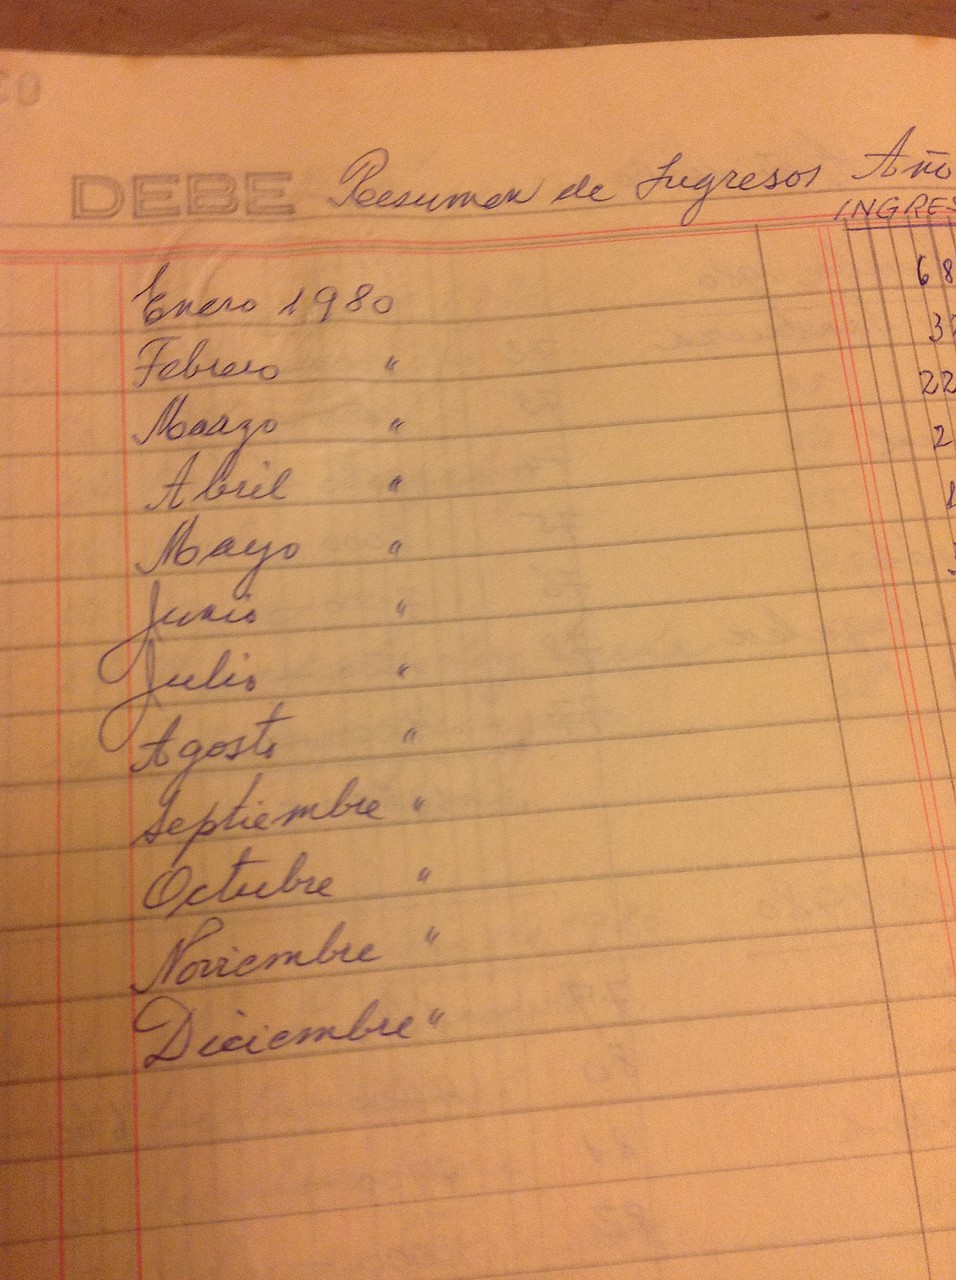 DEBE Resumen de Ingresos Año
INGRES
Enero 1980 68
Febrero " 37
Marzo " 22
Abril " 2
Mayo "
Junio "
Julio "
Agosto "
Septiembre "
Octubre "
Noviembre "
Diciembre "